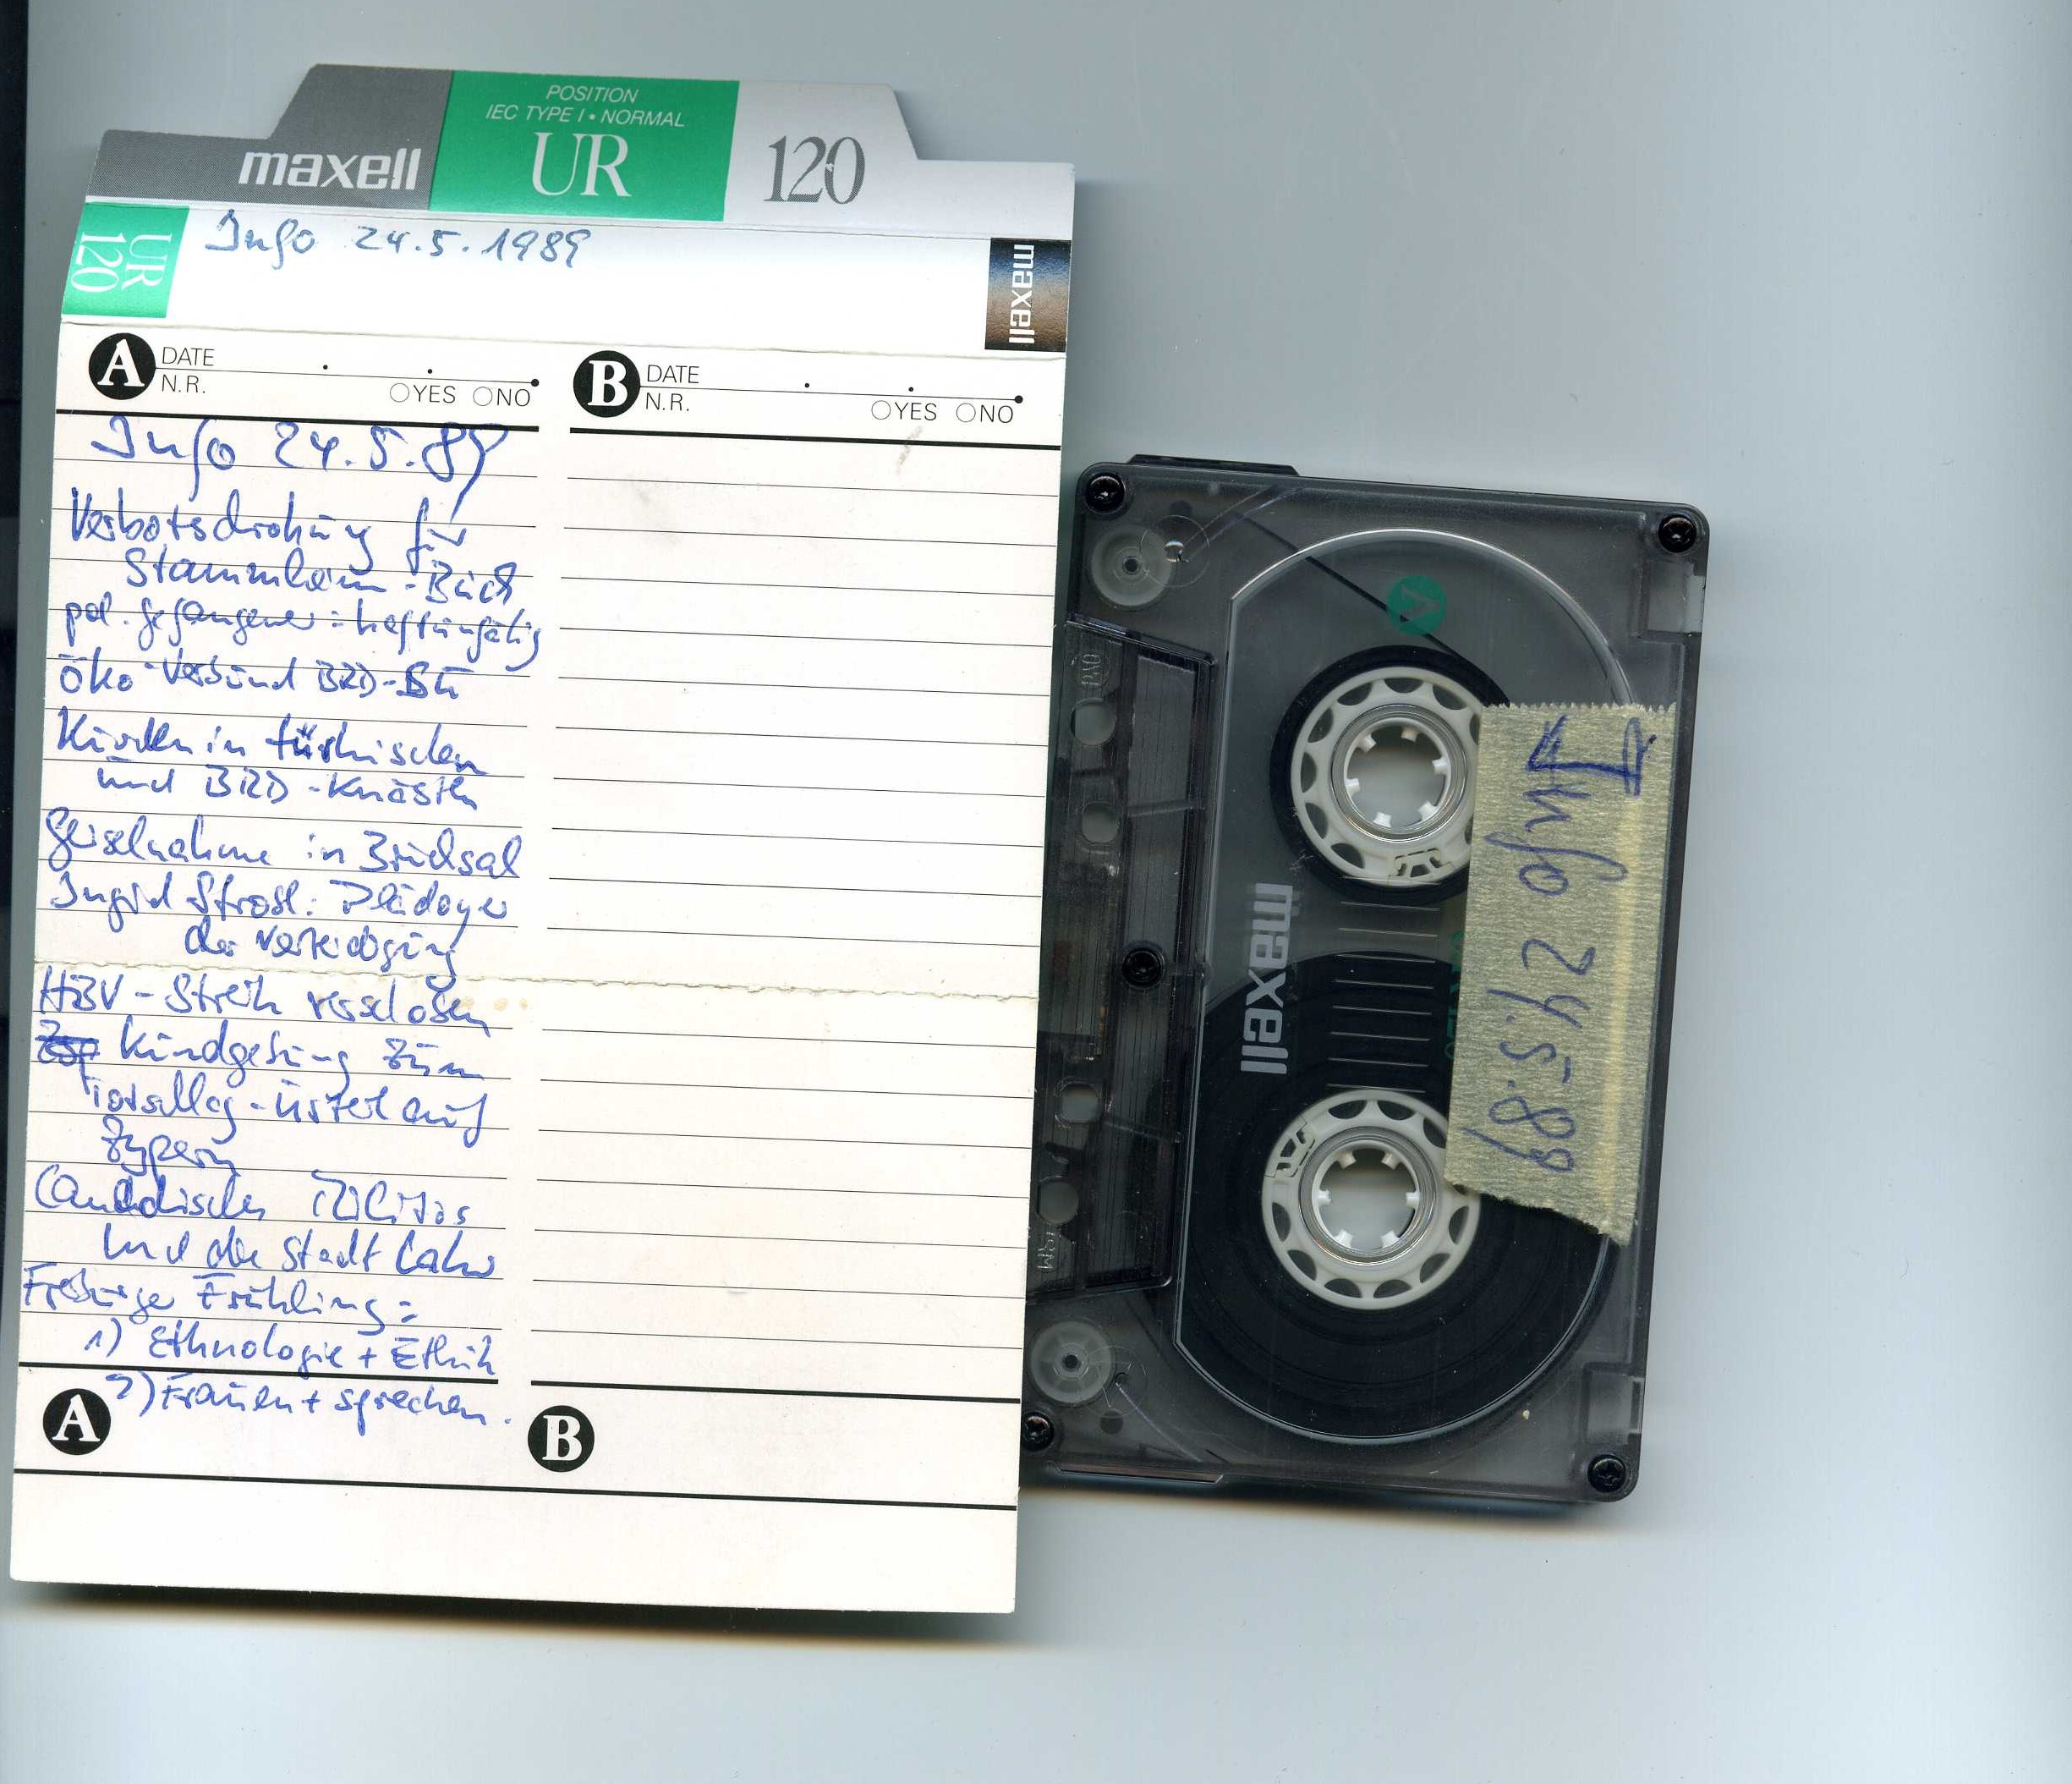 POSITION
IEC TYPE I • NORMAL
maxell
UR
120
UR
120
Info 24.5.1989
maxell
A DATE
N.R. YES NO
B DATE
N.R. YES NO
Info 24.5.89
Verbotsdrohung für
Stammheim-Buch
pol. Gefangener: haftunfähig
Öko-Verbund BRD-
Kurden in türkischen
und BRD-Knästen
Geiselnahme in Bruchsal
Ingrid Strobl: Plädoyer
der Verteidigung
HBV-Streik
Kundgebung zum
-Urteil auf
Zypern
Canadisches
und die Stadt Lahr
Freiburger Frühling:
1) Ethnologie + Ethik
2) Frauen + sprechen.
A
B
A
maxell
Info 24.5.89